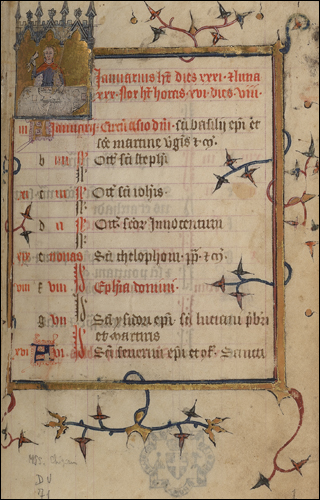 Januarius ht dies xxxi. et luna
xxx. Nox ht horas xvi. dies viii.
iii Januarij. Circūcisio dn̄i. sc̄i basilij ep̄i et
sc̄e martine v̓gīs et m̄.
b iiii N. Oct̄. sc̄i steph̄i.
xi c iii N. Oct̄. sc̄i ioh̄is.
d ii N. Oct̄. sc̄or̄ Innocentum
xix e nonas Sc̄i thelophori pp̄. et m̄.
viii f viii I Eph̄ia domini.
g vii I Sc̄i ysidori ep̄i. sc̄i luciani pb̄ri
et martiris
xvi A vi I Sc̄i seuerini ep̄i et cf̄. Sancti
D V